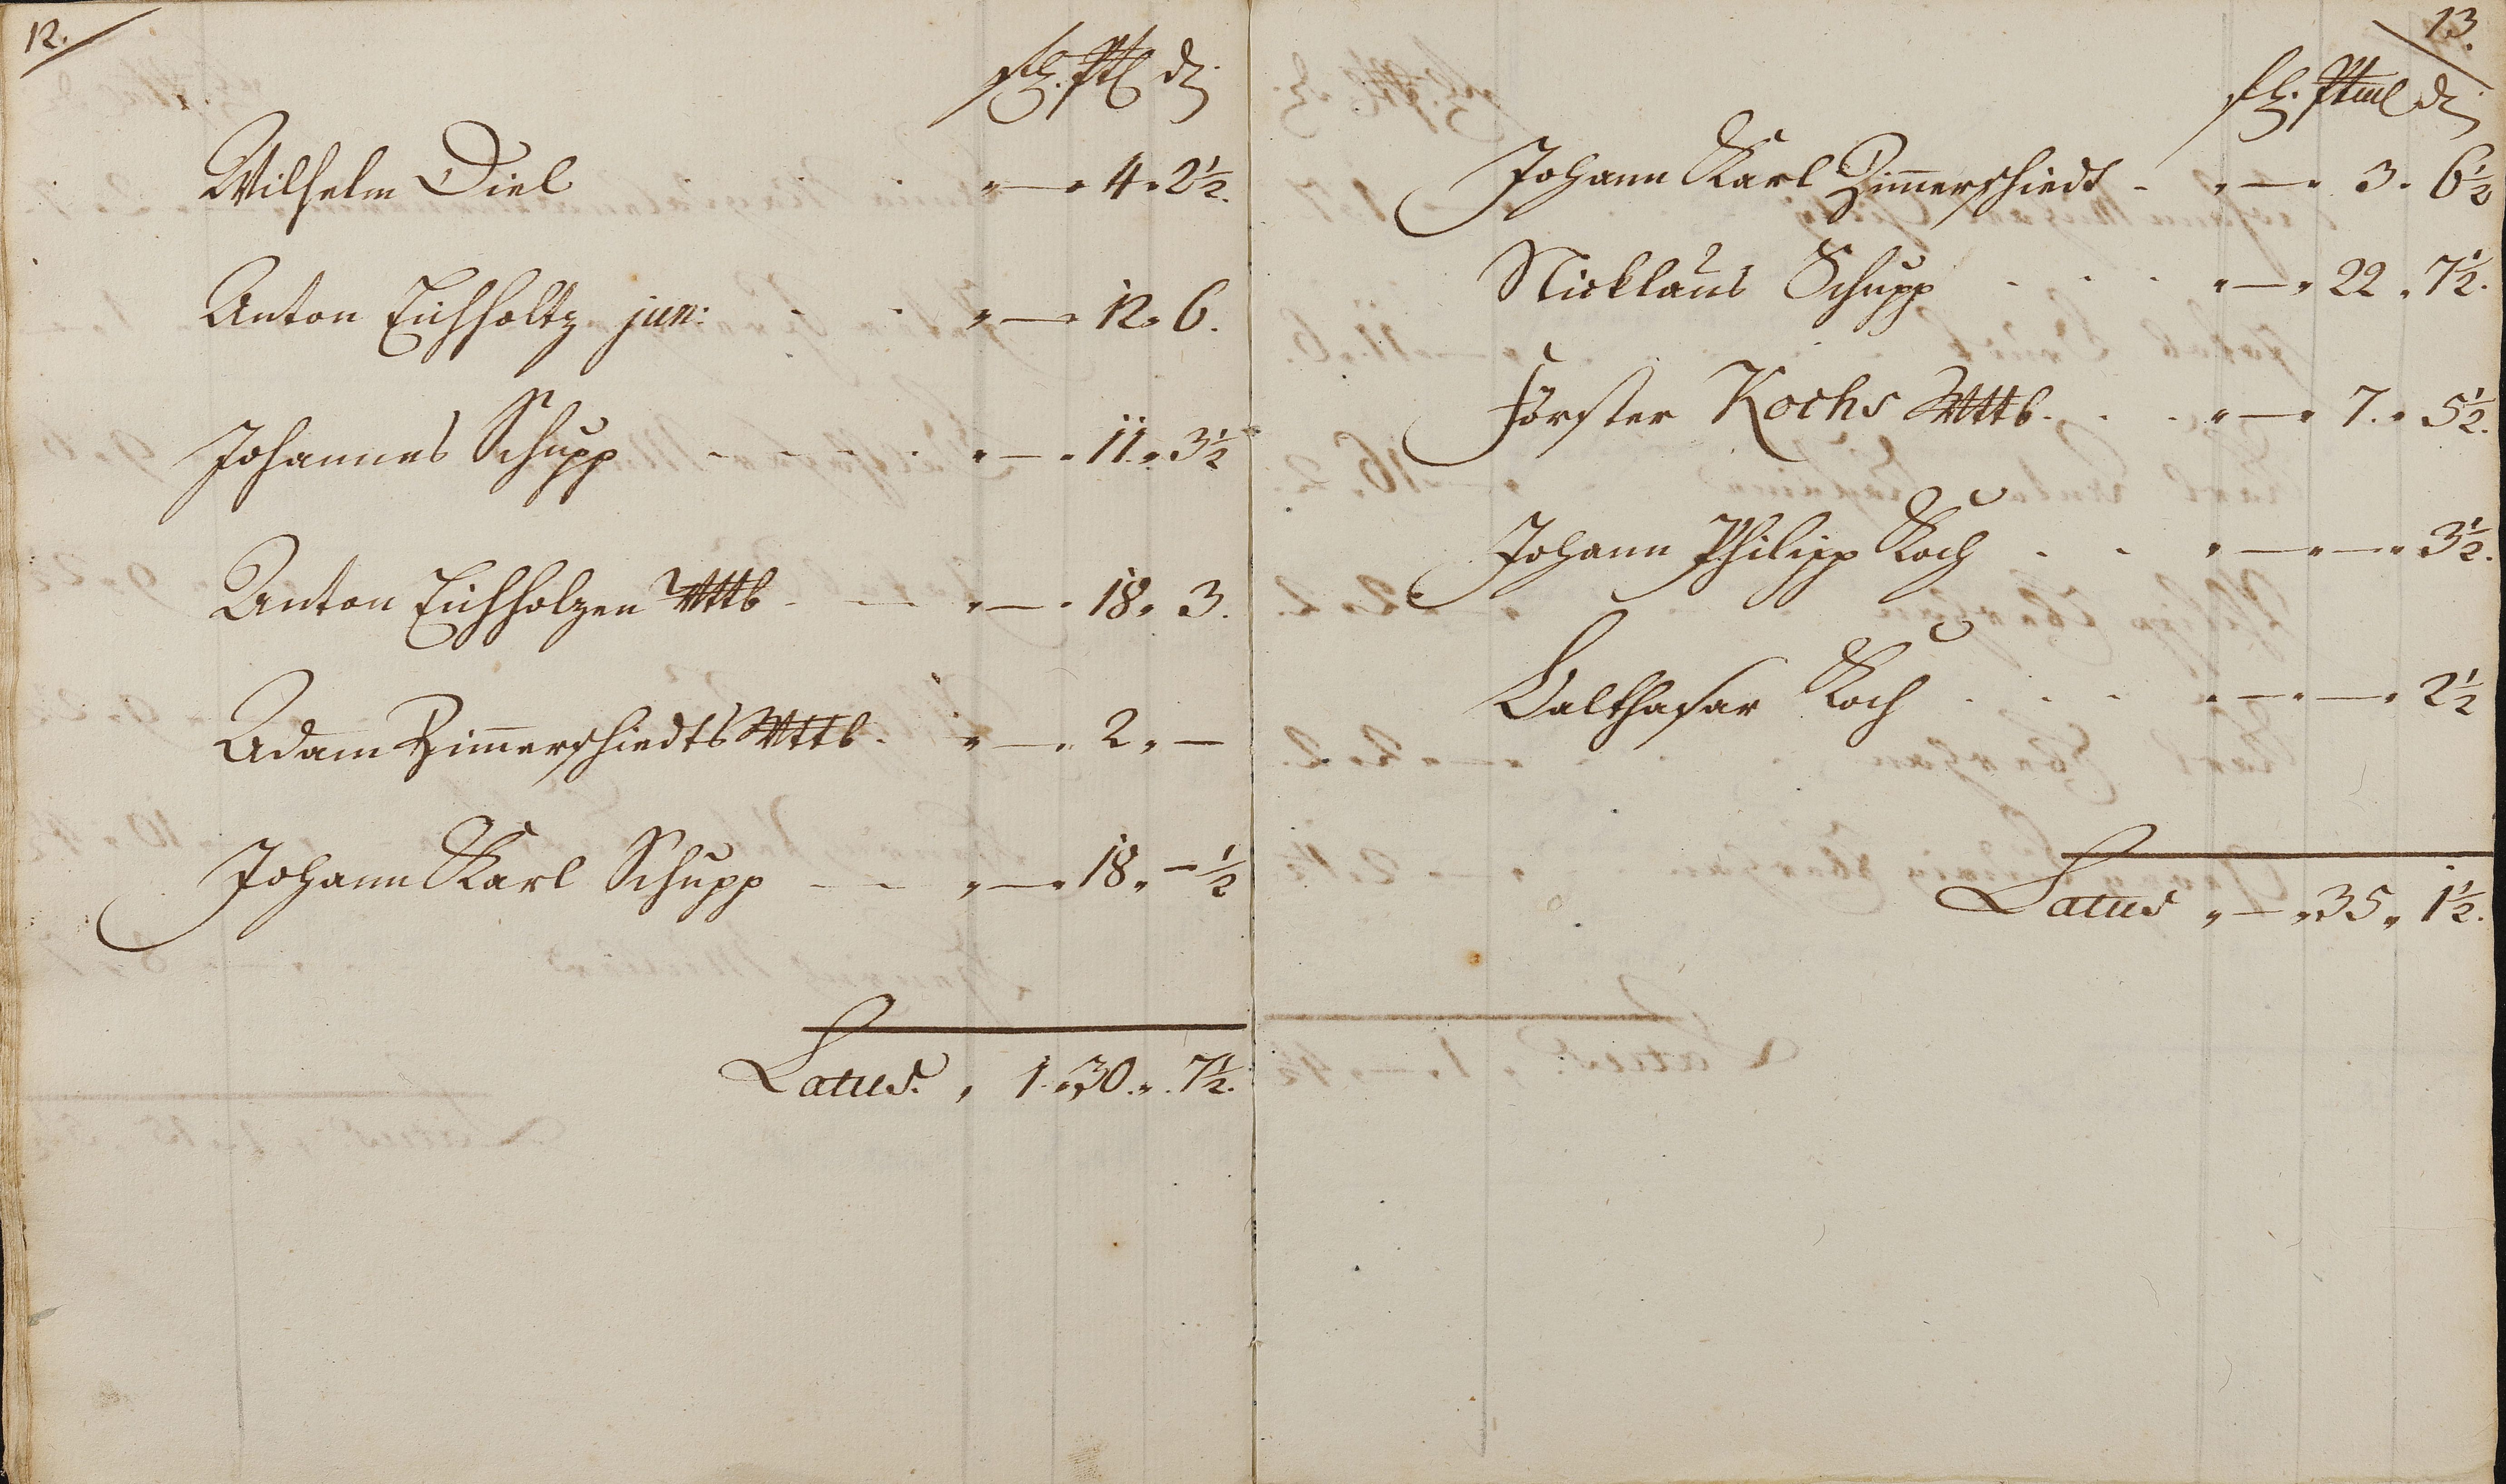 12.
Wilhelm Diel . . . „ — „ 4 „ 2½.
Anton Eichholtz jun: . . „ — „ 12 „ 6.
Johannes Schupp - - - . „ — „ 11 „ 3½
Anton Eichholzen Wttb - — „ — „ 18 „ 3.
Adam Zim̅erschiedts Wttb. „ — „ 2 „ —
Johann Karl Schupp - - „ — „ 18 „ — ½
Latus. „ 1 „ 30 „ 7½.
13.
Johann Karl Zim̅erschiedt - „ — „ 3 „ 6½
Nicklaus Schupp . . . „ — „ 22 „ 7½.
Förster Kochs Wttb. . . „ — „ 7 „ 5½.
Johann Philipp Koch . . „ — „ — „ 3½.
Balthasar Koch . . . „ — „ — „ 2½
Latus „ — „ 35 „ 1½.